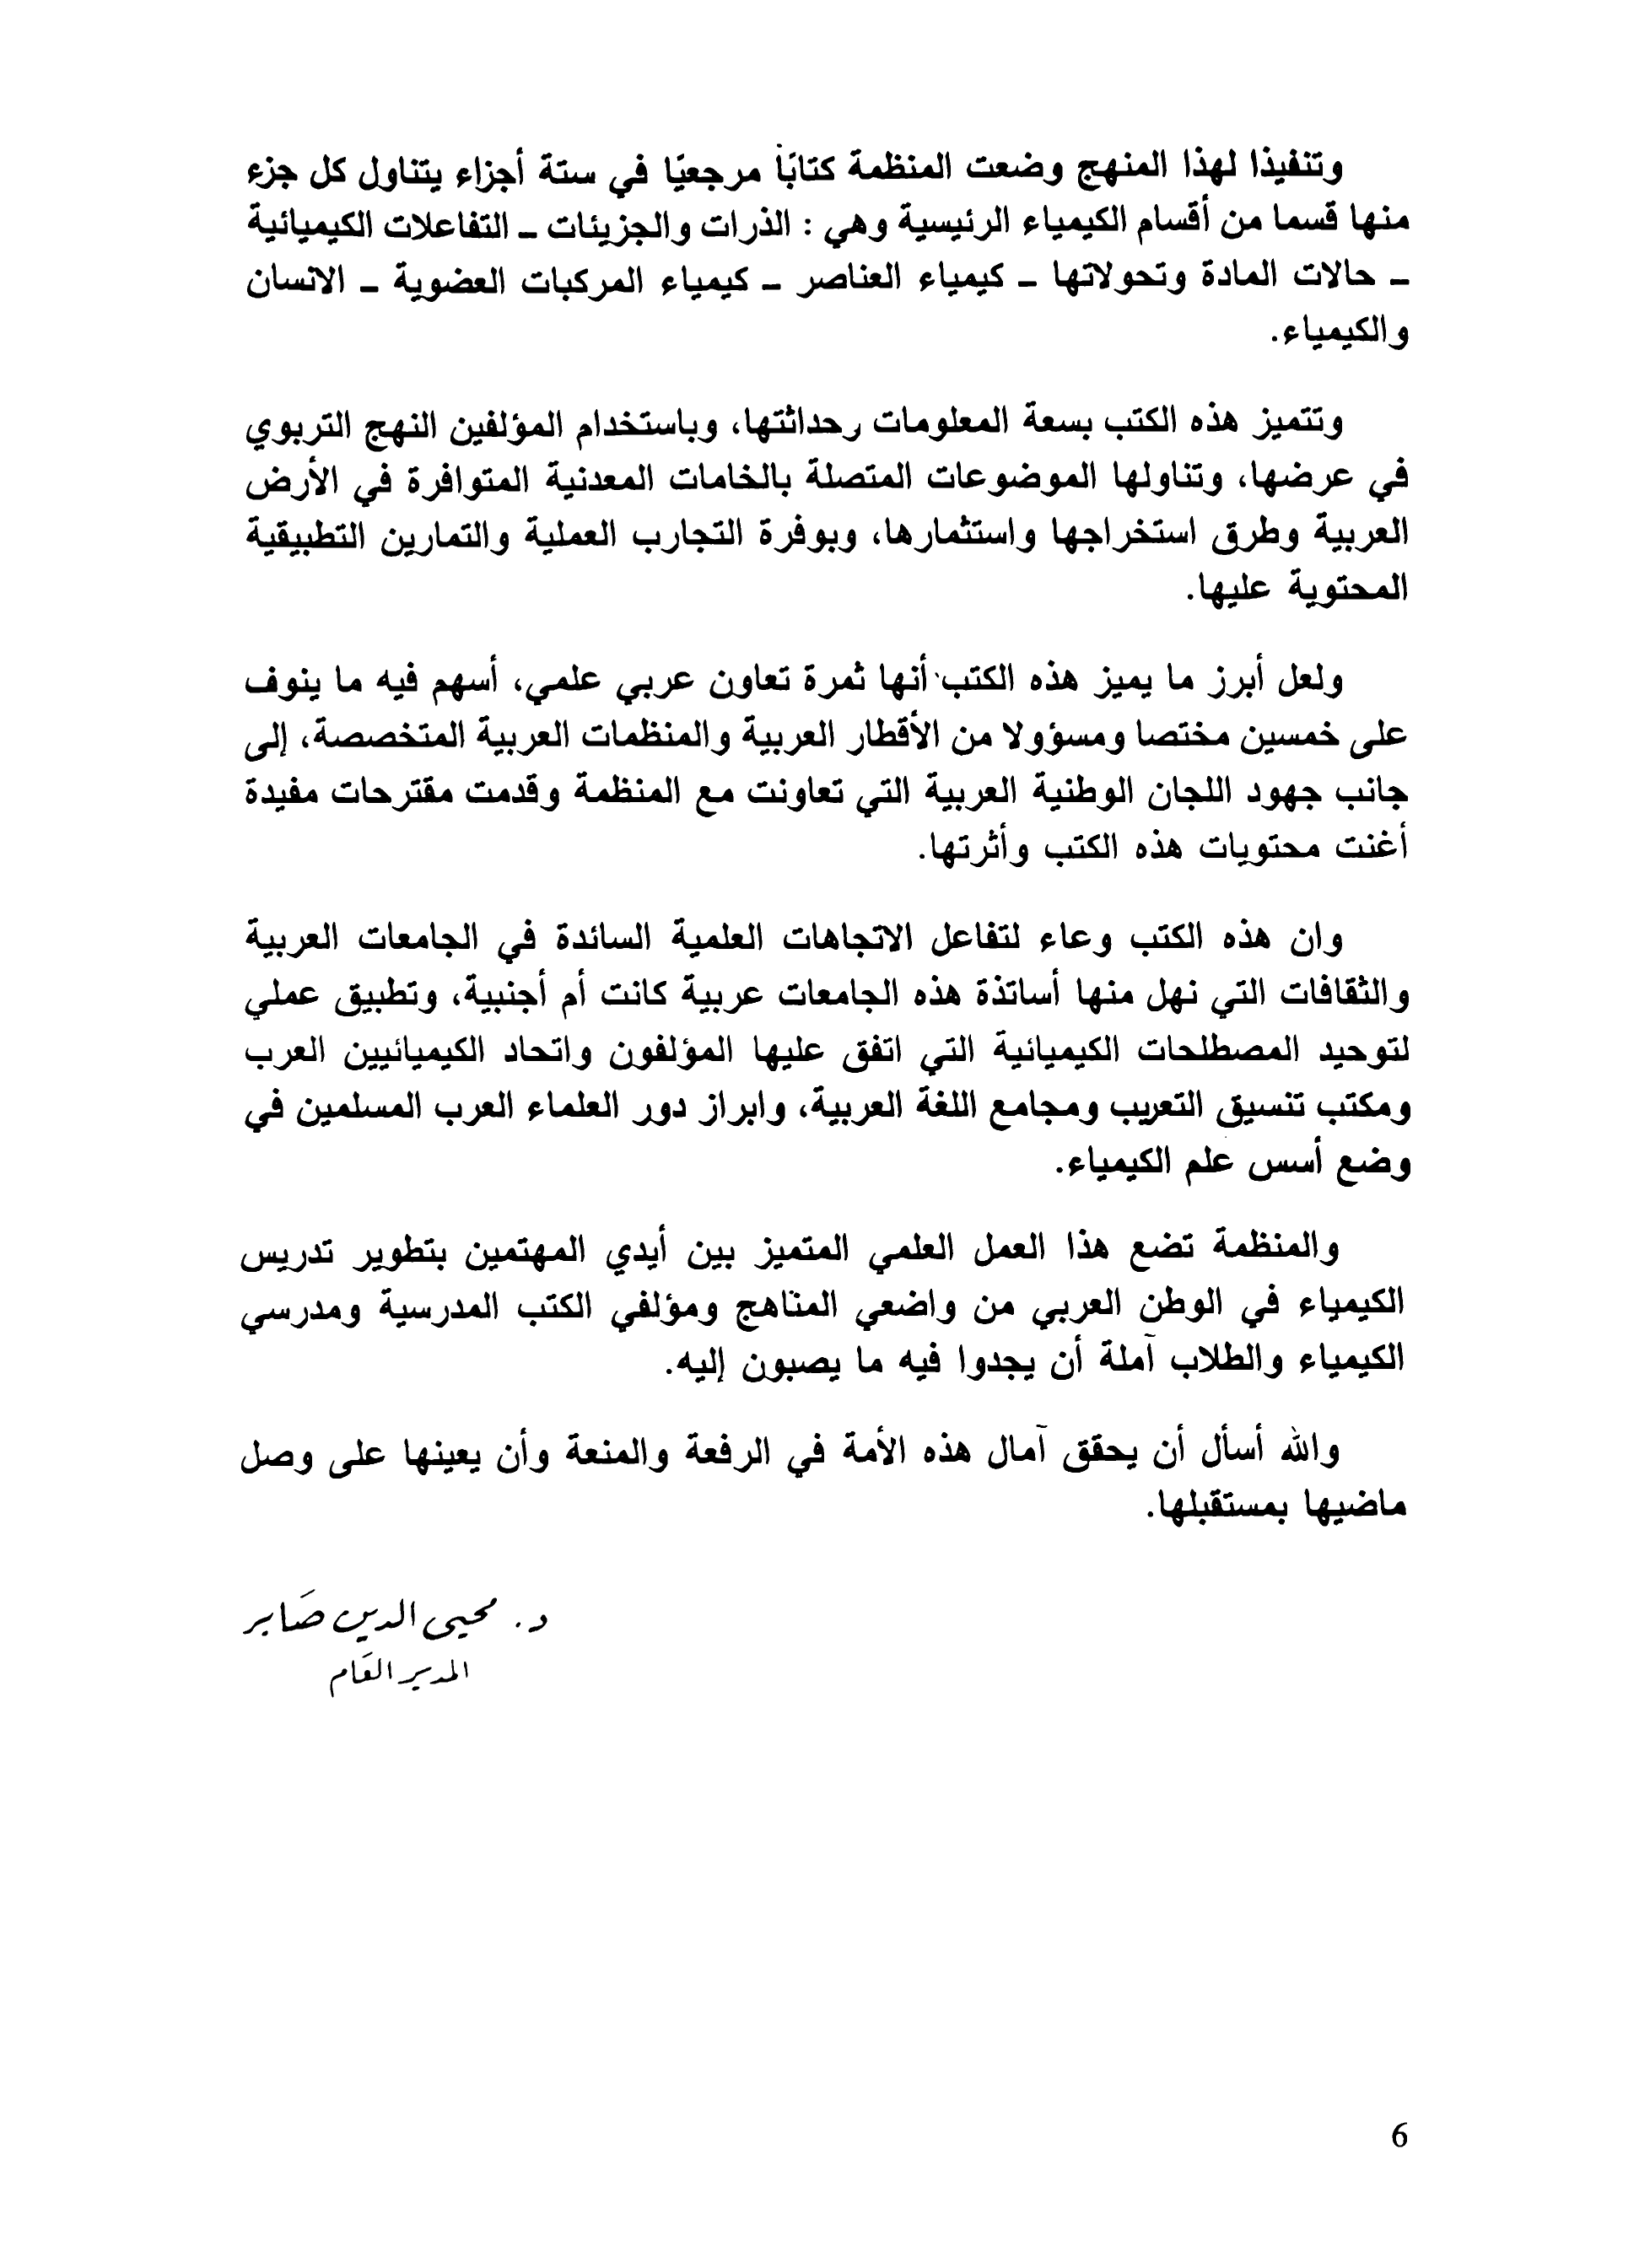 وتنفيذا لهذا المنهج وضعت المنظمة كتابًا مرجعيًا في ستة أجزاء يتناول كل جزء
منها قسما من أقسام الكيمياء الرئيسية وهي : الذرات والجزيئات ـ التفاعلات الكيميائية
ـ حالات المادة وتحولاتها ـ كيمياء العناصر ـ كيمياء المركبات العضوية ـ الانسان
والكيمياء.
وتتميز هذه الكتب بسعة المعلومات رحداثتها، وباستخدام المؤلفين النهج التربوي
في عرضها، وتناولها الموضوعات المتصلة بالخامات المعدنية المتوافرة في الأرض
العربية وطرق استخراجها واستثمارها، وبوفرة التجارب العملية والتمارين التطبيقية
المحتوية عليها.
ولعل أبرز ما يميز هذه الكتب أنها ثمرة تعاون عربي علمي، أسهم فيه ما ينوف
على خمسين مختصا ومسؤولا من الأقطار العربية والمنظمات العربية المتخصصة، إلى
جانب جهود اللجان الوطنية العربية التي تعاونت مع المنظمة وقدمت مقترحات مفيدة
أغنت محتويات هذه الكتب وأثرتها.
وان هذه الكتب وعاء لتفاعل الاتجاهات العلمية السائدة في الجامعات العربية
والثقافات التي نهل منها أساتذة هذه الجامعات عربية كانت أم أجنبية، وتطبيق عملي
لتوحيد المصطلحات الكيميائية التي اتفق عليها المؤلفون واتحاد الكيميائيين العرب
ومكتب تنسيق التعريب ومجامع اللغة العربية، وابراز دور العلماء العرب المسلمين في
وضع أسس علم الكيمياء.
والمنظمة تضع هذا العمل العلمي المتميز بين أيدي المهتمين بتطوير تدريس
الكيمياء في الوطن العربي من واضعي المناهج ومؤلفي الكتب المدرسية ومدرسي
الكيمياء والطلاب آملة أن يجدوا فيه ما يصبون إليه.
والله أسأل أن يحقق آمال هذه الأمة في الرفعة والمنعة وأن يعينها على وصل
ماضيها بمستقبلها.
د. محيى الدين صَابر
المدير العَام
6